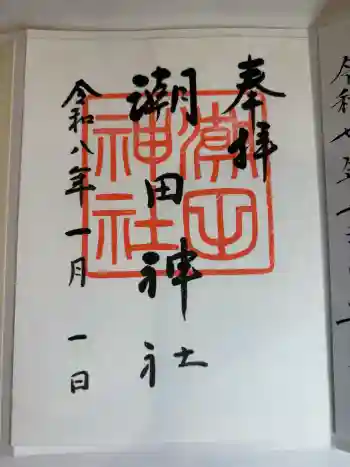 奉拝
潮田神社
令和八年一月一日
潮田神社
令和七年